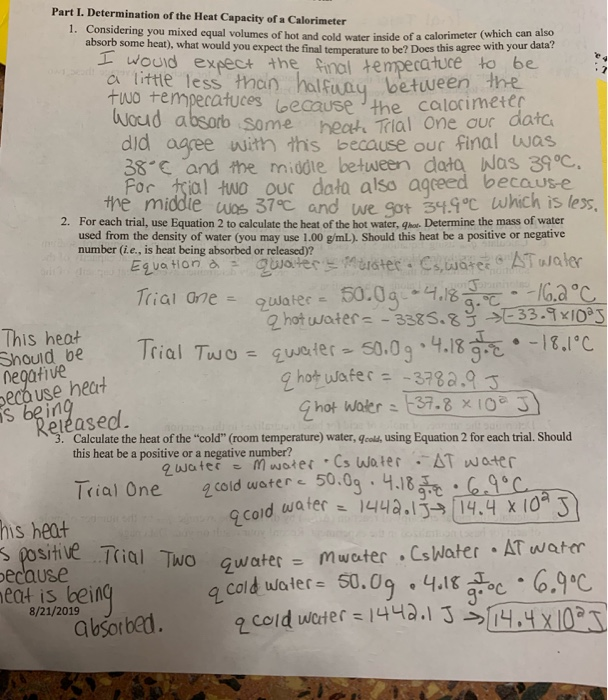 Part I. Determination of the Heat Capacity of a Calorimeter
1. Considering you mixed equal volumes of hot and cold water inside of a calorimeter (which can also
absorb some heat), what would you expect the final temperature to be? Does this agree with your data?
I would expect the final temperature to be
a little less than halfway between the
two temperatures because the calorimeter
Would absorb some heat. Trial One our data
did agree with this because our final was
38°C and the middle between data Was 39°C.
For trial two our data also agreed because
the middle was 37°C and we got 34.9°C which is less.
2. For each trial, use Equation 2 to calculate the heat of the hot water, qhot. Determine the mass of water
used from the density of water (you may use 1.00 g/mL). Should this heat be a positive or negative
number (i.e., is heat being absorbed or released)?
Equation 2 = qwater = Mwater • Cs,water • ΔT water
Trial One = qwater = 50.0g • 4.18 J/g.°C • -16.2°C
qhot water = -3385.8 J → -33.9x10² J
This heat
Should be
negative
because heat
is being
Released.
Trial Two = qwater = 50.0g • 4.18 J/g.°C • -18.1°C
qhot water = -3782.9 J
qhot water = -37.8 x 10² J
3. Calculate the heat of the "cold" (room temperature) water, qcold, using Equation 2 for each trial. Should
this heat be a positive or a negative number?
qwater = mwater • Cs Water • ΔT water
Trial One qcold water = 50.0g • 4.18 J/g.°C • 6.9°C
qcold water = 1442.1J → 14.4 x 10² J
his heat
s positive
because
heat is being
absorbed.
Trial Two qwater = mwater • CsWater • ΔT water
qcold water = 50.0g • 4.18 J/g.°C • 6.9°C
qcold water = 1442.1 J → 14.4x10² J
8/21/2019